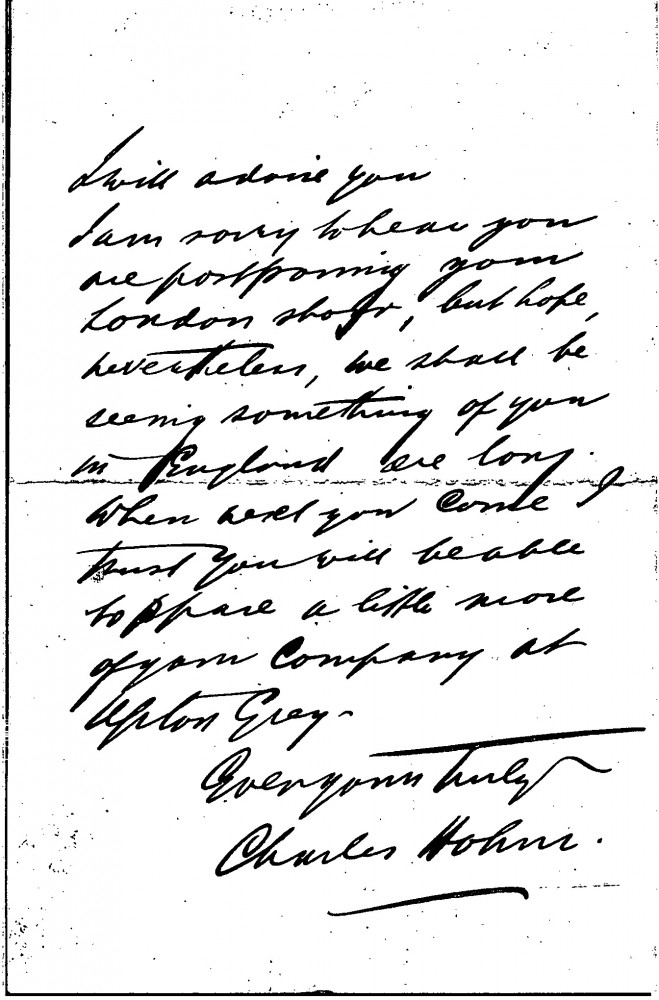 I will advise you
I am sorry to hear you
are postponing your
London show, but hope,
nevertheless, we shall be
seeing something of you
in England ere long.
When next you come I
trust you will be able
to spare a little more
of your company at
Upton Grey -
Ever yours truly
Charles Holme.